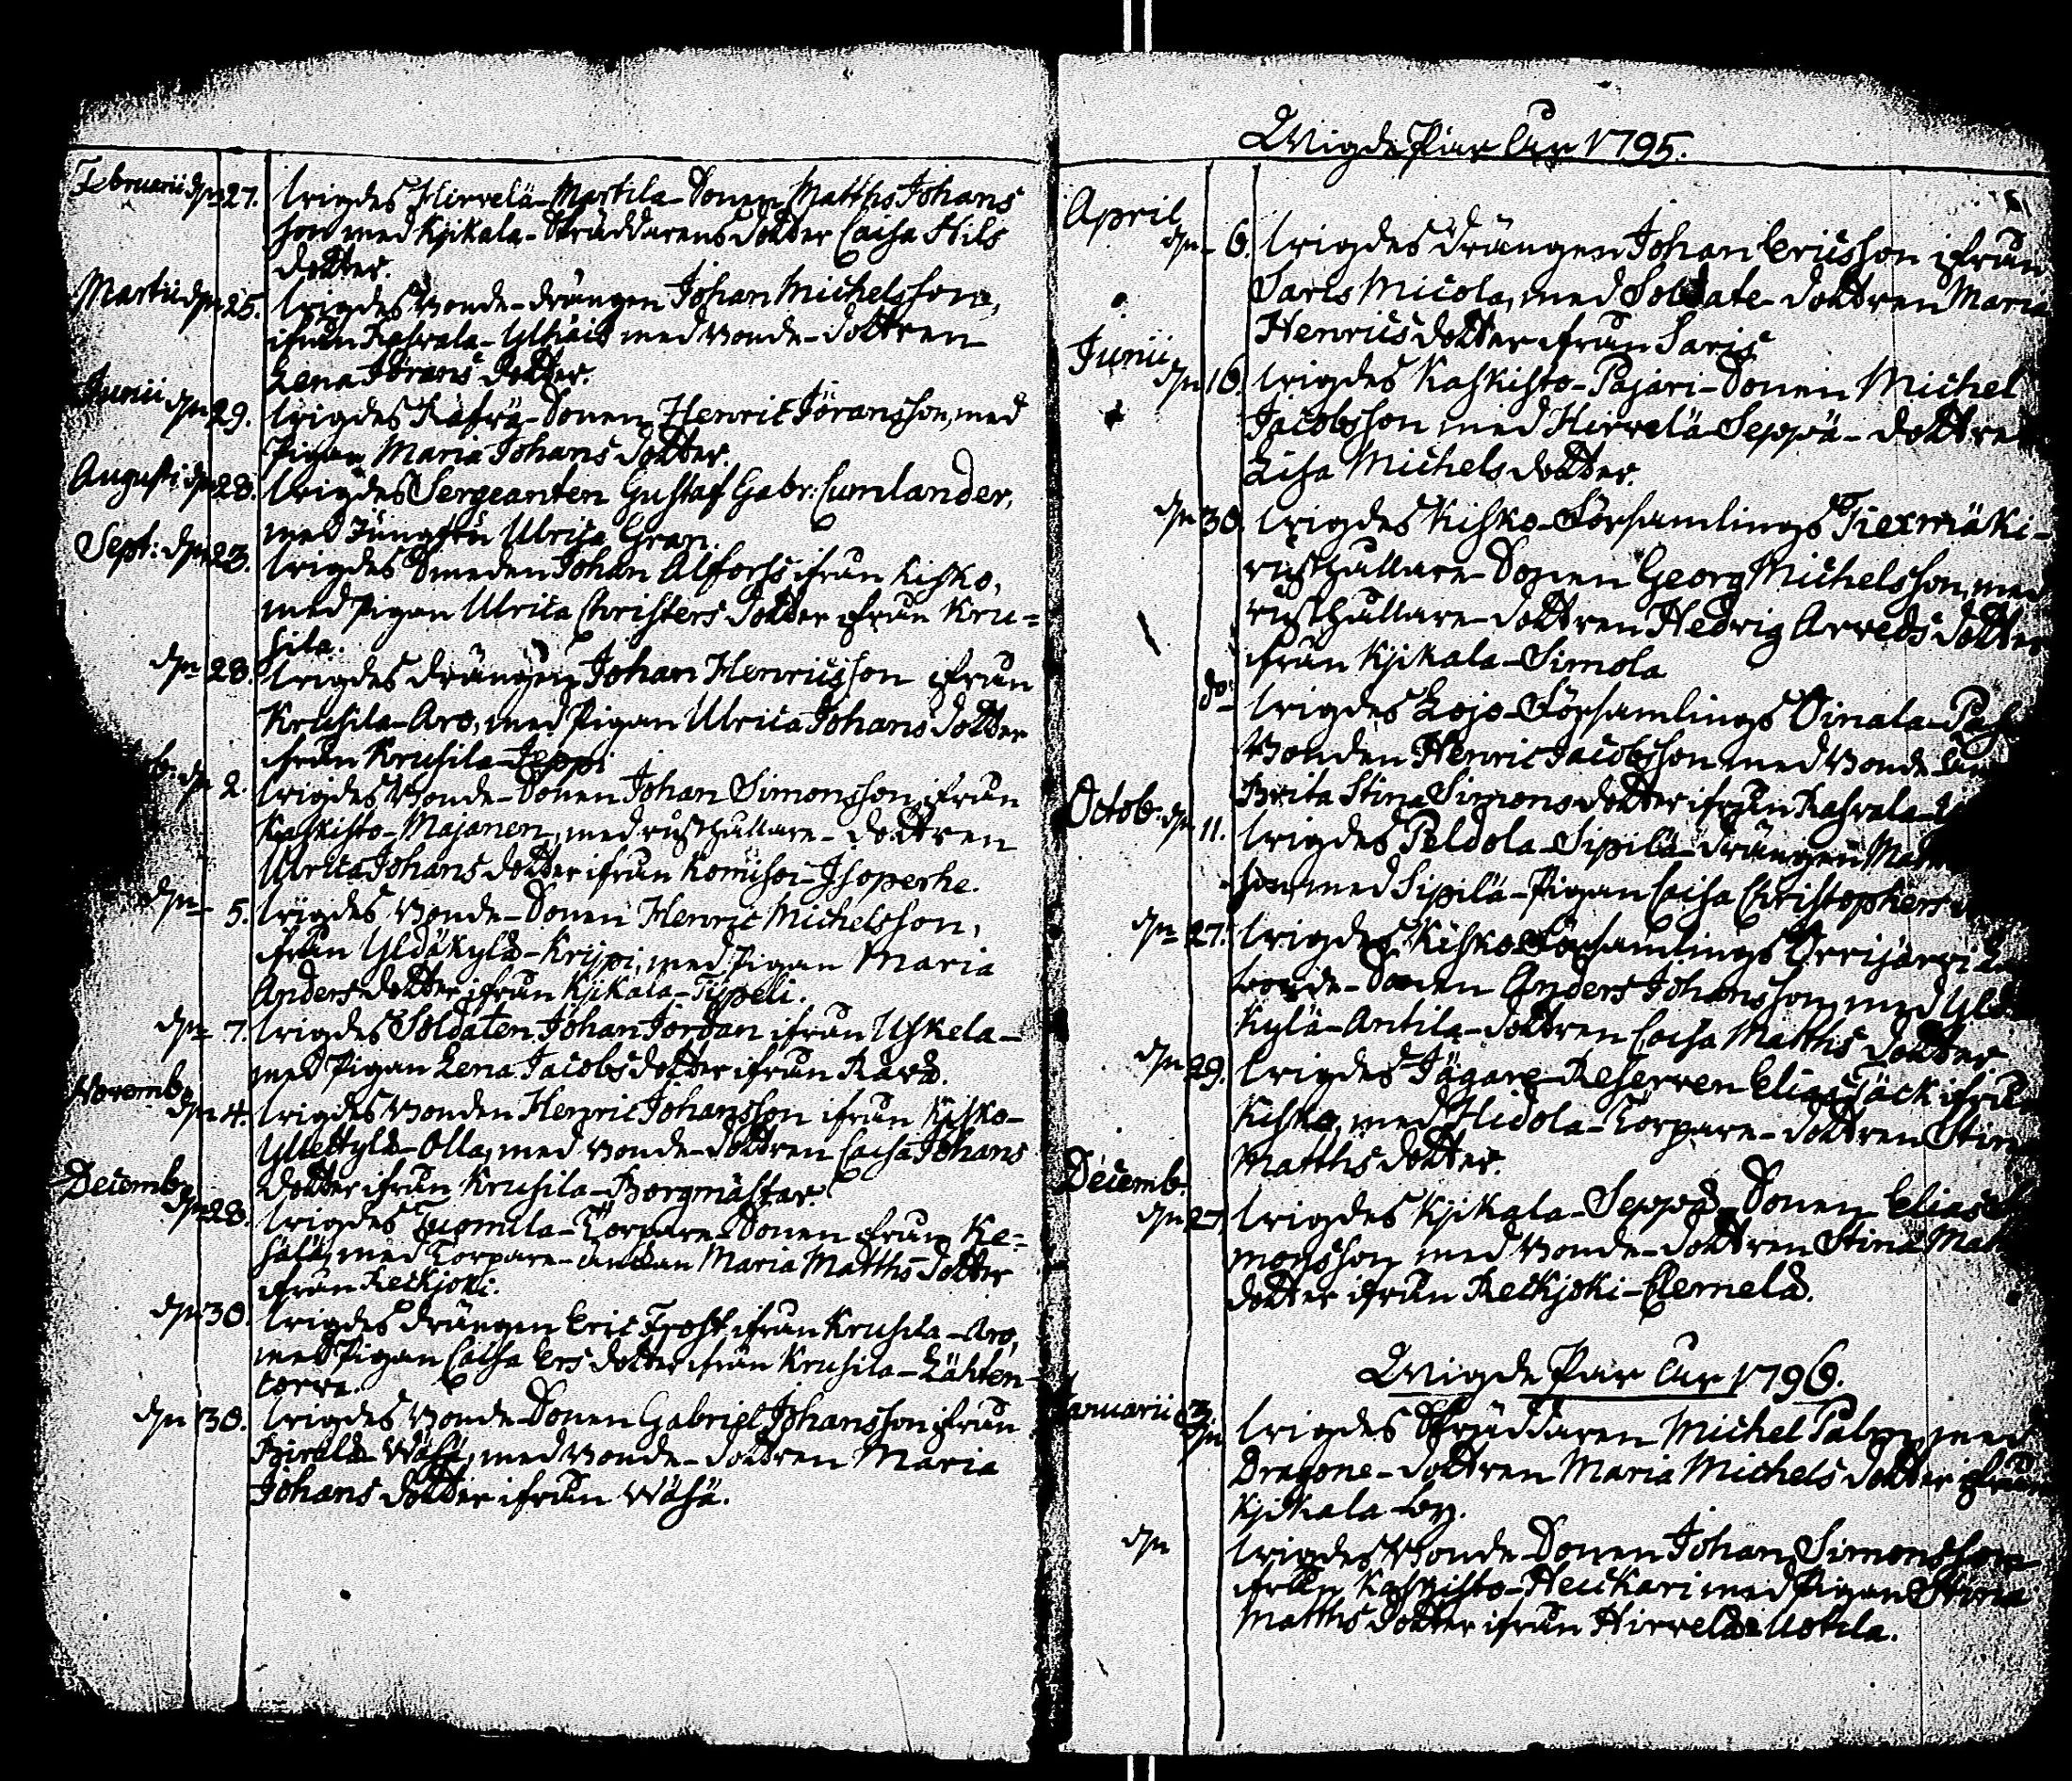 Februarii d:n 27. wigdes Hirvelä-Martila-Sonen Matths Johans
son med Kjikala-Skräddarens dotter Caisa Nils
dotter.
Martii d:n 25. wigdes Bonde-drängen Johan Michelsson,
ifrån Rasvala- med Bonde-dottren
Lena Jörans dotter.
Junii d:n 29. wigdes Sonen Henric Jöransson, med
Pigan Maria Johans dotter.
Augusti d:n 28. wigdes Sergeanten Gustaf Gabr: Cumlander,
med Jungfru Ulrica Gran.
Sept: d:n 23. wigdes Smeden Johan Alforss ifrån Kisko,
med Pigan Ulrica Christers dotter ifrån Kru=
sila.
d:n 28. wigdes drängen Johan Henricsson ifrån
Krusila-Aro, med Pigan Ulrica Johans dotter
ifrån Krusila-Seppi
d:n 2. wigdes Bonde-Sonen Johan Simonsson ifrån
Kaskisto-Majanen, med rusthållare-dottren
Ulrica Johans dotter ifrån Komisoi-Isoperhe.
d:n 5. wigdes Bonde-Sonen Henric Michelsson,
ifrån Yldäkylä-Krijpi, med Pigan Maria
Anders dotter ifrån Kjikala-Typpeli.
d:n 7. wigdes Soldaten Johan Jordan ifrån Uskela-
med Pigan Lena Jacobs dotter ifrån
Novemb: d:n 4. wigdes Bonden Henric Johansson ifrån Kisko-
Olla, med Bonde-dottren Caisa Johans
dotter ifrån Krusila-Borgmästar
Decemb: d:n 28. wigdes Tuomila-Torpare-Sonen ifrån Ke=
sälä, med Torpare-Enkan Maria Matths dotter
ifrån Reckjoki.
d:n 30. wigdes drängen Eric Frost, ifrån Krusila-Aro,
med Pigan Caisa Ers dotter ifrån Krusila-Lähten
corva.
d:n 30. wigdes Bonde-Sonen Gabriel Johansson ifrån
Pirelä-Wäsä, med Bonde-dottren Maria
Johans dotter ifrån Wäsä.
Wigde Par År 1795.
April
d:n 6. wigdes drängen Johan Ericsson ifrån
Saris Micola, med Soldate-dottren Maria
Henrics dotter ifrån Saris
Junii
d:n 16. wigdes Kaskisto-Pajari-Sonen Michel
Jacobsson med Hirvelä-Seppä-dottren
Lisa Michels dotter.
d:n 30. wigdes Kisko-Församlings Tiexmäki-
rusthållare-Sonen Georg Michelsson, med
rusthållare-dottren Hedvig Arveds dotter
ifrån Kjikala-Simola
do: wigdes Lojo-Församlings Oinala-
Bonden Henric Jacobsson med Bonde
Brita Stina Simons dotter ifrån Rasvala-
Octob: d:n 11. wigdes Peldola-Sipilä-drängen
son, med Sipilä-Pigan Caisa Christophers
d:n 27. wigdes Kisko Församlings Orrijärvi
bonde-Sonen Anders Johansson, med Yldä
kylä-Antila-dottren Caisa Matths dotter
d:n 29. wigdes Jägare-Reserven Elias Jäck ifrån
Kisko, med Hidola-Torpare-dottren Stina
Matths dotter.
Decemb:
d:n 27. wigdes Kjikala-Seppä-Sonen Elias
monsson med Bonde-dottren Stina
dotter ifrån Reckjoki-Clemelä.
Wigde Par År 1796.
Januarii 3
d:n wigdes Skräddaren Michel Palm, med
Dragone-dottren Maria Michels dotter ifrån
Kjikala by.
d:n wigdes Bonde-Sonen Johan Simonsson
ifrån Kaskisto-Heickari med Pigan Stina
Matths dotter ifrån Hirvelä-Uotila.